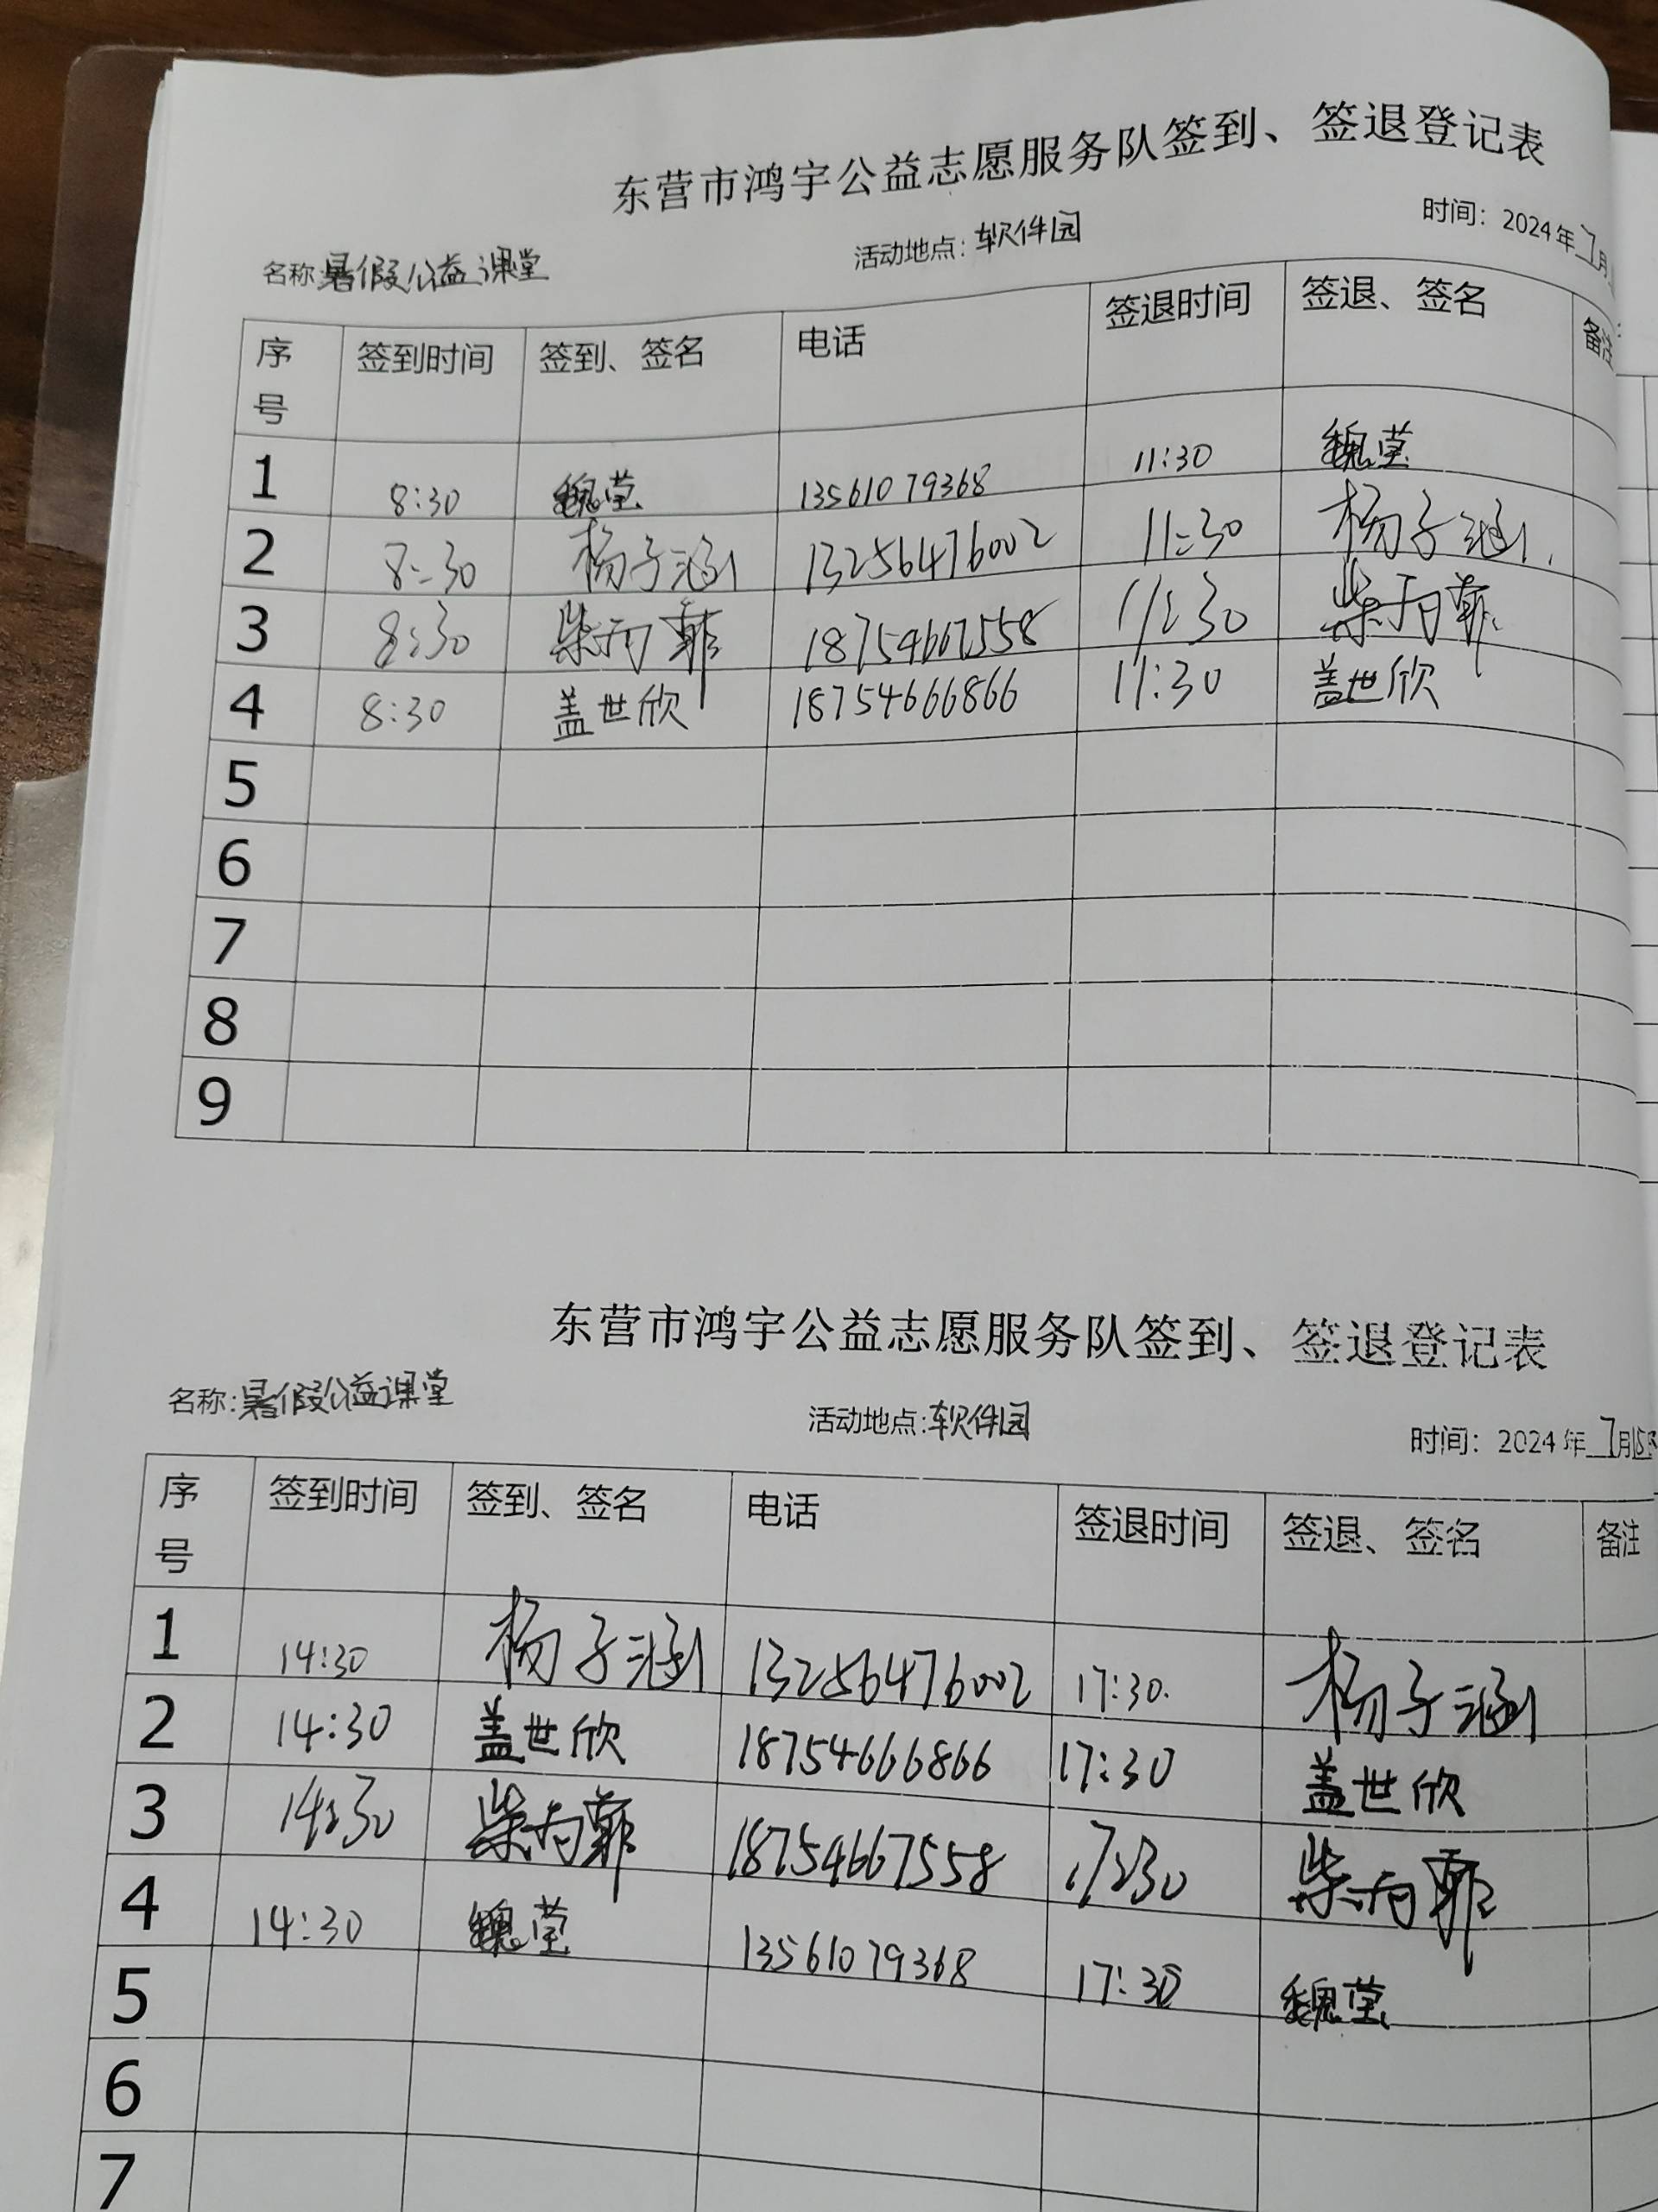 东营市鸿宇公益志愿服务队签到、签退登记表
名称:暑假公益课堂 活动地点:软件园 时间:2024年7月
序号 签到时间 签到、签名 电话 签退时间 签退、签名 备注
1 8:30 魏莹 13561079368 11:30 魏莹
2 8:30 杨子涵 13256476002 11:30 杨子涵
3 8:30 柴雨菲 18754667558 11:30 柴雨菲
4 8:30 盖世欣 18754666866 11:30 盖世欣
5
6
7
8
9
东营市鸿宇公益志愿服务队签到、签退登记表
名称:暑假公益课堂 活动地点:软件园 时间:2024年7月
序号 签到时间 签到、签名 电话 签退时间 签退、签名 备注
1 14:30 杨子涵 13256476002 17:30. 杨子涵
2 14:30 盖世欣 18754666866 17:30 盖世欣
3 14:30 柴雨菲 18754667558 17:30 柴雨菲
4 14:30 魏莹 13561079368 17:30 魏莹
5
6
7